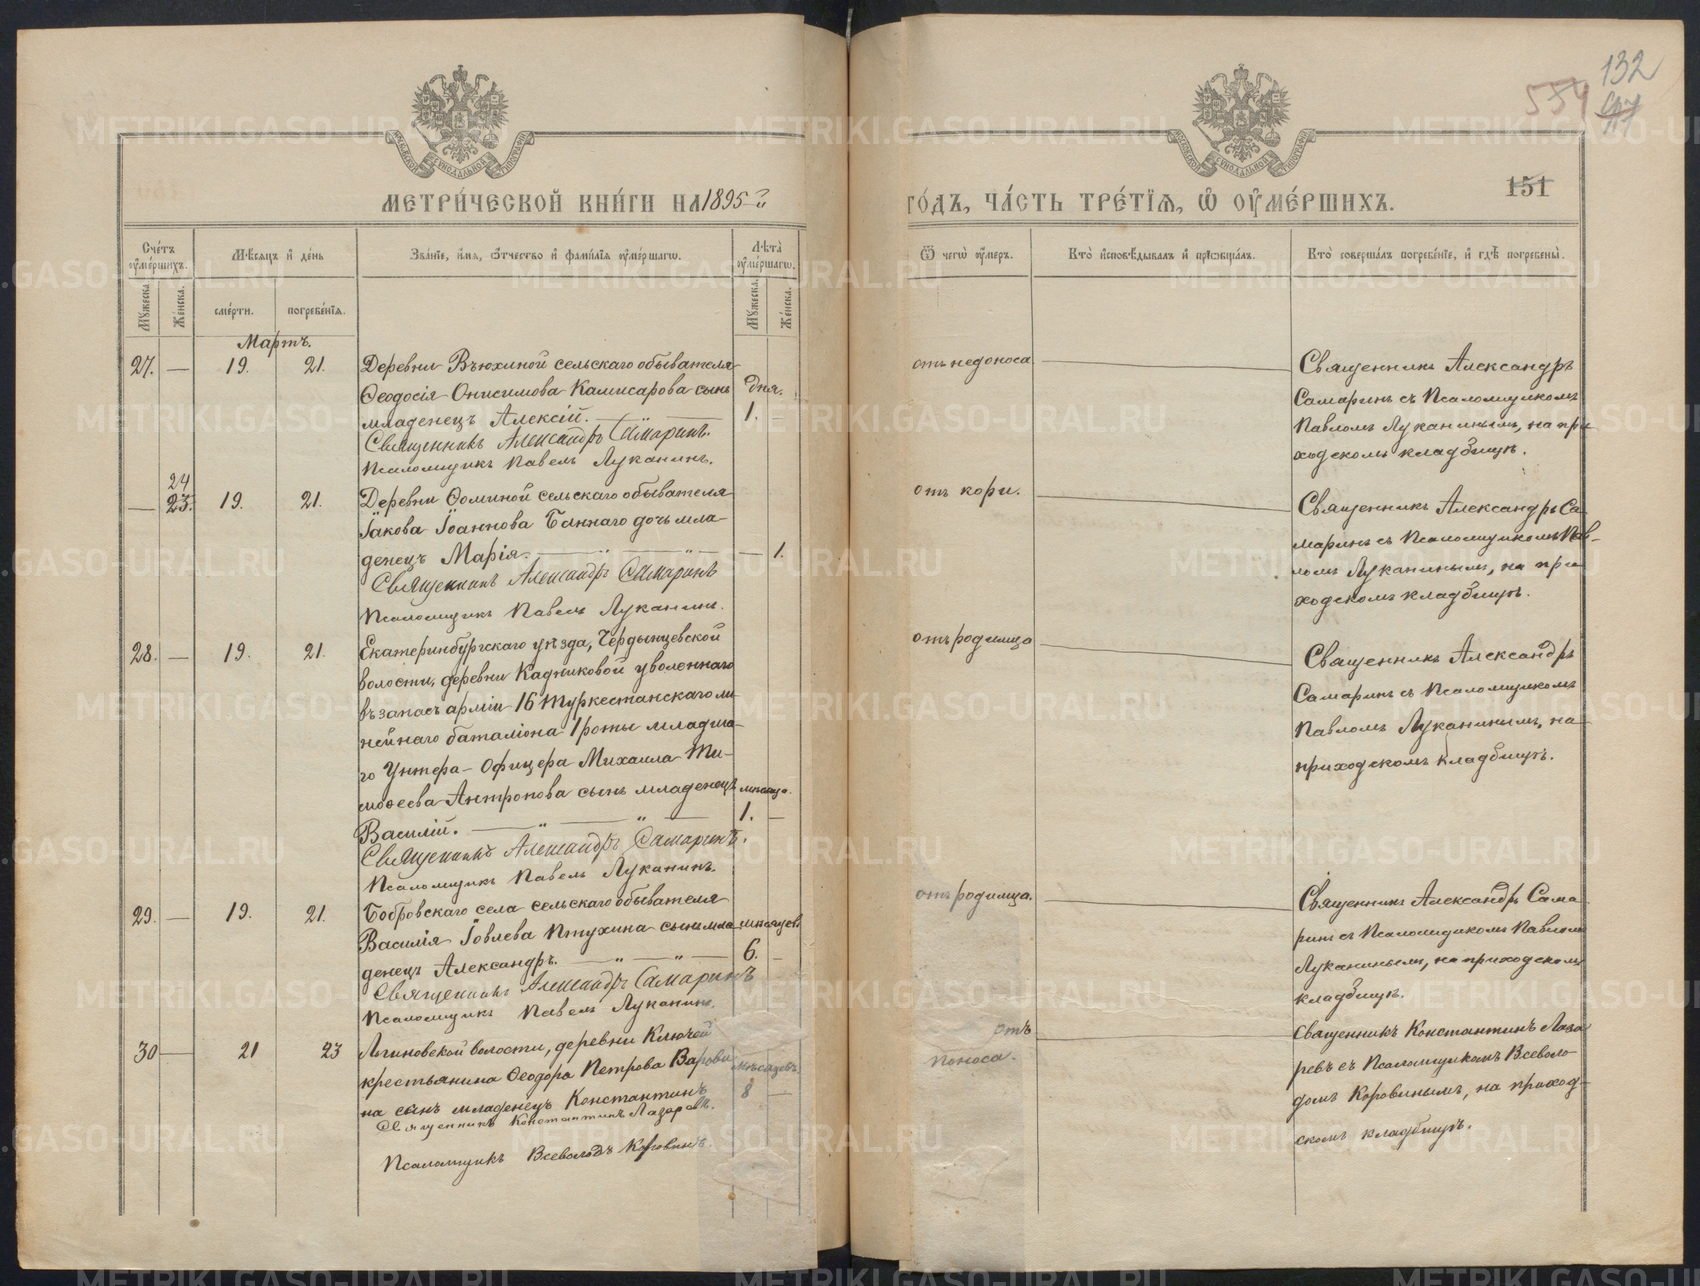 132
554
151
МЕТРИ́ЧЕСКОЙ КНИ́ГИ НА 1895 й
ГО́ДЪ, ЧА́СТЬ ТРЕ́ТІѦ, Ѽ ОУ҆МЕ́РШИХЪ.
Сче́тъ оу҆ме́ршихъ.
Мѣ́сяцъ и҆ де́нь
Зва́нїе, и҆́мя, ѻ҆́тчество и҆ фами́лїя оу҆ме́ршагѡ.
Лѣ́та оу҆ме́ршагѡ.
Ѿ чегѡ̀ оу҆́меръ.
Кто̀ и҆сповѣ́дывалъ и҆ прїѡбща́лъ.
Кто̀ соверша́лъ погребе́нїе, и҆ гдѣ̀ погребены̀.
Мꙋ́жеска.
Же́нска.
сме́рти.
погребе́нїѧ.
Мꙋ́жеска.
Же́нска.
Мартъ.
27. — 19. 21.
Деревни Вьюхиной сельскаго обывателя
Ѳеодосія Онисимова Камисарова сынъ
младенецъ Алексій.
дня.
1.
Священникъ Александръ Самаринъ.
Псаломщикъ Павелъ Луканинъ.
отъ недоноса
Священникъ Александръ
Самаринъ съ Псаломщикомъ
Павломъ Луканинымъ, на при
ходскомъ кладбищѣ.
24
— 23. 19. 21.
Деревни Ѳоминой сельскаго обывателя
Іакова Іоаннова Баннаго дочь мла-
денецъ Марія. — " — " — — 1.
Священникъ Александръ Самаринъ
Псаломщикъ Павелъ Луканинъ.
отъ кори.
Священникъ Александръ Са-
маринъ съ Псаломщикомъ Пав-
ломъ Луканинымъ, на при
ходскомъ кладбищѣ.
28. — 19. 21.
Екатеринбургскаго уѣзда, Чердынцевской
волости, деревни Кадниковой уволеннаго
въ запасъ арміи 16 Туркестанскаго ли-
нейнаго баталіона 1 роты младша-
го Унтеръ-Офицера Михаила Ти-
моѳеева Антропова сынъ младенецъ
Василій. — " — " —
мѣсяца.
1. —
Священникъ Александръ Самаринъ.
Псаломщикъ Павелъ Луканинъ.
отъ родимца
Священникъ Александръ
Самаринъ съ Псаломщикомъ
Павломъ Луканинымъ, на
приходскомъ кладбищѣ.
29. — 19. 21.
Бобровскаго села сельскаго обывателя
Василія Іовлева Птухина сынъ мла
денецъ Александръ. — " — " —
мѣсяцев
6. —
Священникъ Александръ Самаринъ
Псаломщикъ Павелъ Луканинъ.
отъ родимца.
Священникъ Александръ Сама
ринъ съ Псаломщикомъ Павломъ
Луканинымъ, на приходскомъ
кладбищѣ.
30 — 21 23
Логиновской волости, деревни Ключей
крестьянина Ѳеодора Петрова Варови
на сынъ младенецъ Константинъ
мѣсяцевъ
8 —
Священникъ Константинъ Лазаревъ.
Псаломщикъ Всеволодъ Коровинъ.
отъ
поноса.
Священникъ Константинъ Лаза
ревъ съ Псаломщикомъ Всеволо-
домъ Коровинымъ, на приход-
скомъ кладбищѣ.
METRIKI.GASO-URAL.RU